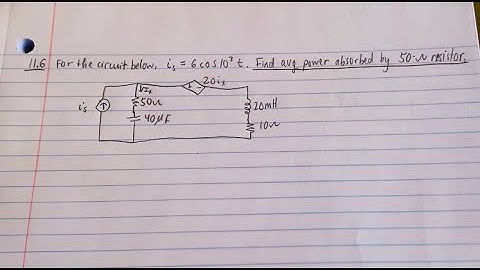 11.6 For the circuit below, iₛ = 6 cos 10³ t. Find avg power absorbed by 50-Ω resistor.
↓Iₓ + - 20iₓ
iₛ 50Ω 20mH
40μF 10Ω